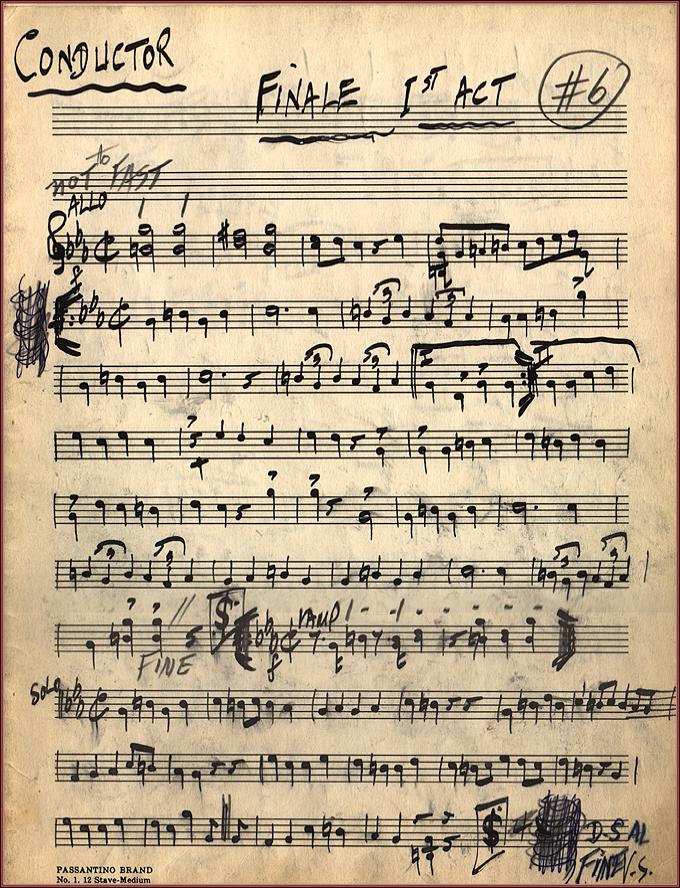 CONDUCTOR
FINALE 1ST ACT #6
NOT to FAST
ALLO
VAMP
FINE
SOLO
D.S AL
FINE
PASSANTINO BRAND
No. 1. 12 Stave-Medium